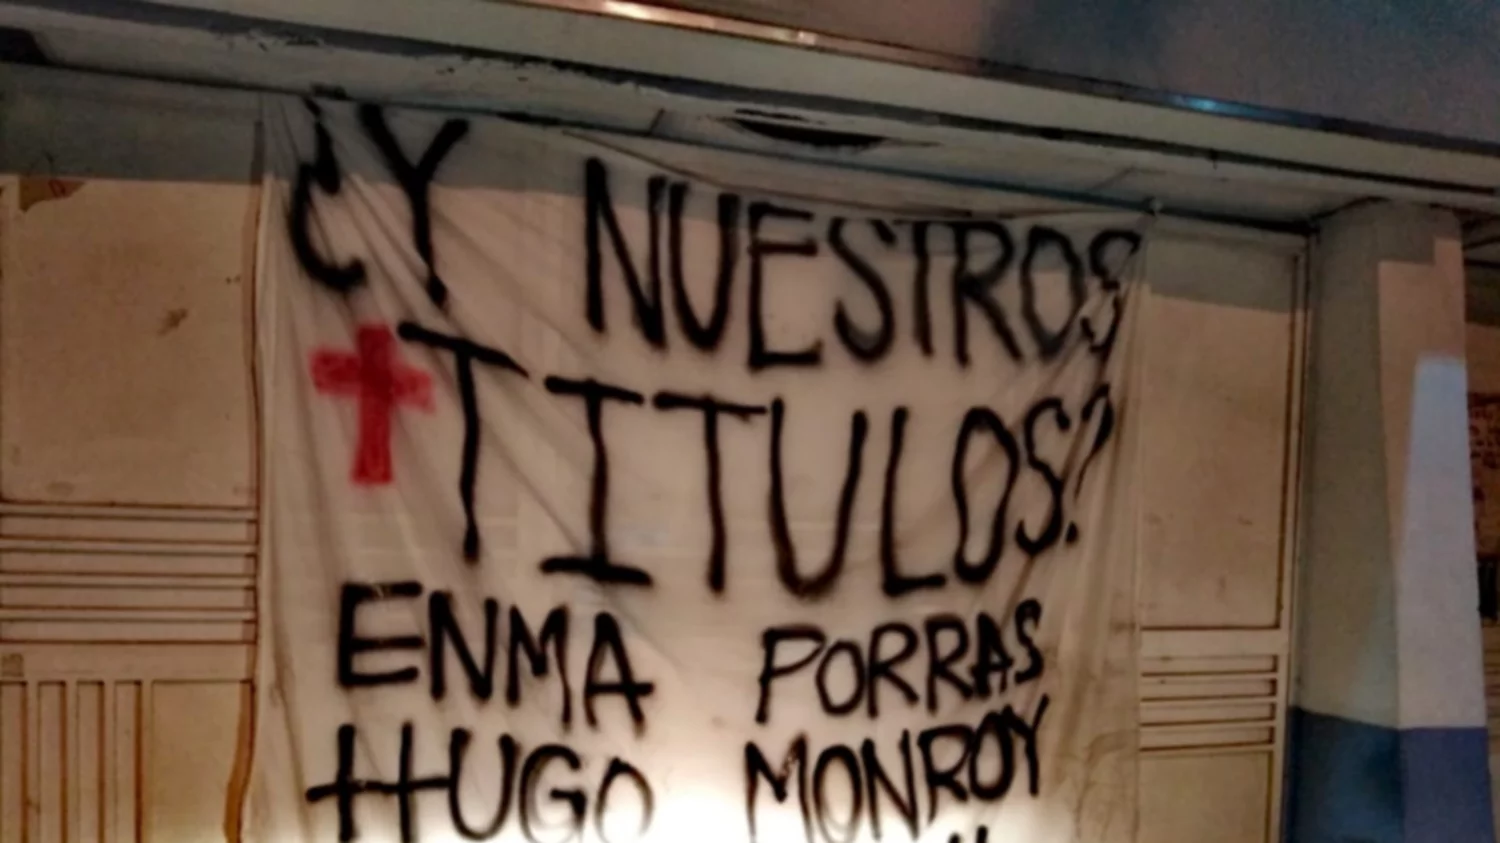 ¿Y NUESTROS
TITULOS?
ENMA PORRAS
HUGO MONROY